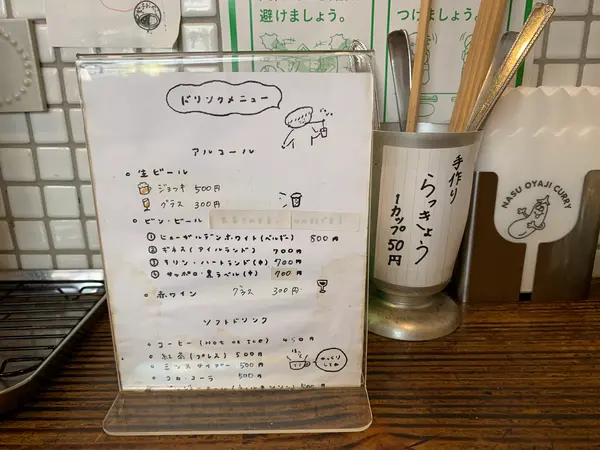 避けましょう。
つけましょう。
ドリンクメニュー
アルコール
生ビール
ジョッキ 500円
グラス 300円
ビン・ビール
① ヒューガルデンホワイト(ベルギー) 800円
② ギネス(アイルランド) 700円
③ キリン・ハートランド(中) 700円
④ サッポロ・黒ラベル(中) 700円
赤ワイン グラス 300円
ソフトドリンク
コーヒー(HOT or ICE) 450円
紅茶(プレス) 500円
ミンスタイガー 500円
コカ・コーラ 500円
ゆっくりしてね
手作り
らっきょう
1カップ50円
NASU OYAJI CURRY